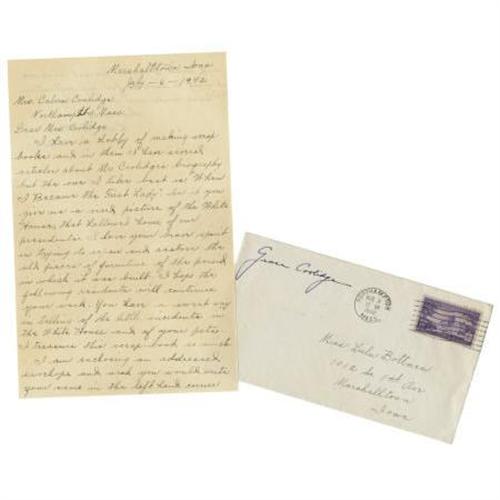 Marshalltown Iowa
July - 6 - 1942
Mrs. Calvin Coolidge
Northampton Mass
Dear Mrs. Coolidge
I have a hobby of making scrap
books and in them I have several
articles about Mr Coolidges biography
but the one I like best is "When
I Became the First Lady" for it you
give us a nice picture of the White
House, that hallowed home of our
presidents. I love your brave spirit
in trying to save and restore the
old pieces of furniture of the period
in which it was built. I hope the
following residents will continue
your work. You have a sweet way
in telling of the little incidents in
the White House and of your pets.
I treasure this scrap book so much
I am enclosing an addressed
envelope and wish you would write
your name in the left hand corner
Grace Coolidge
NORTHAMPTON
1942
MASS.
Miss Lula Bottars
1012 So 1st Ave
Marshalltown
Iowa